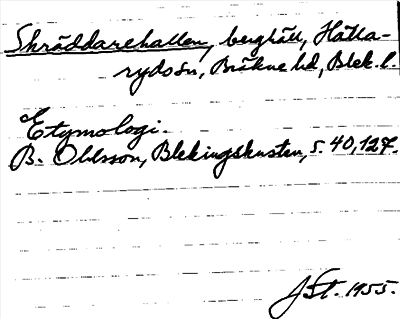 Skräddarehallen, berghäll, Hälla-
rydsön, Bräkne hd, Blek. l.
Etymologi.
B. Ohlsson, Blekingskusten, s. 40, 127.
JSt. 1955.